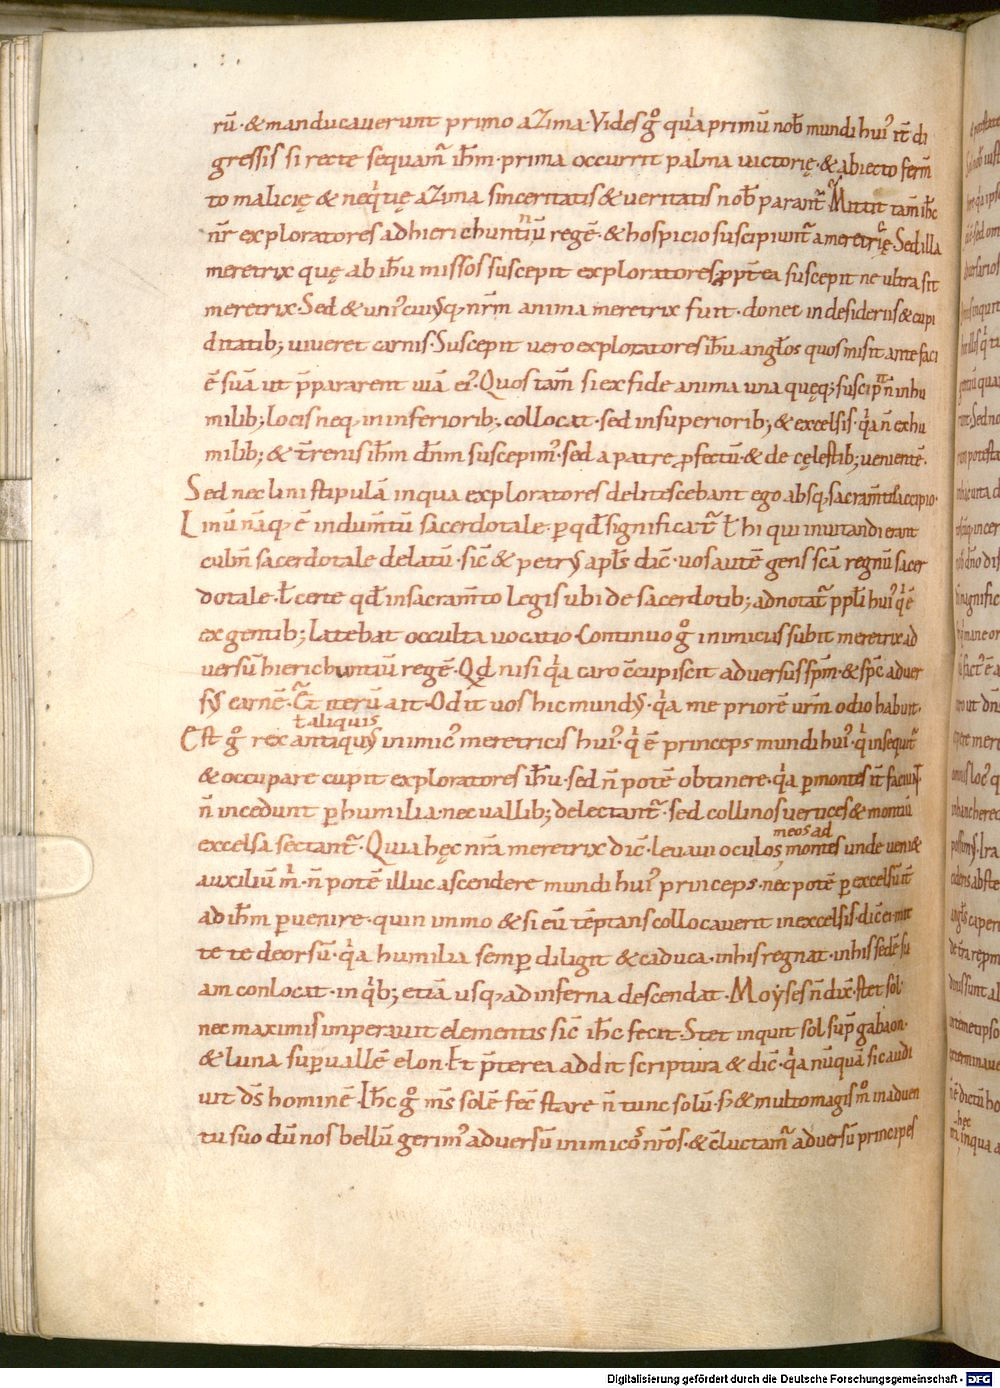 rū · & manducauerunt primo aZima · Vides gͦ qͥa primū nob̄ mundi huiꝰ it̄ di
gressis si recte sequam̄ ih̄m · prima occurrit palma uictorię · & abiecto ferm̄
to malicię & neqͥtię aZima sinceritatis & ueritatis nob̄ parant᷑ Mittit tam̄ ih̄c
nr̄ exploratores ad hierichuntinū regē · & hospicio suscipiunt᷑ a meretricę · Sed illa
meretrix quę ab ih̄u missos suscepit exploratores ꝓpt̄ea suscepit ne ultra sit
meretrix · Sed & uniꝰcuiꝰq; nr̄m anima meretrix fuit · donec in desideriis & cupi
ditatib; uiueret carnis · Suscepit uero exploratores ih̄u angl̄os quos misit ante faci
ē suā ut p̄pararent uiā eiꝰ · Quos tam̄ si ex fide anima una quęq; suscipit n̄ in hu
milib; locis neq; in inferiorib; collocat · sed in superiorib; & excelsis · qͥa n̄ ex hu
milib; & t̄renis ih̄m dn̄m suscepimꝰ · sed a patre ꝓfectū · & de cęlestib; uenientē ·
Sed nec lini stipulā in qua exploratores delitescebant ego absq; sacram̄to accipio ·
Linū nāq; ē indum̄tū sacerdotale · per qd̄ significat᷑ ł hi qui inuitandi erant
culm̄ sacerdotale delatū · sic̄ & petrꝰ apl̄s dic̄ · uos autē gens sc̄a regnū sacer
dotale · ł certe qd̄ in sacram̄to legis ubi de sacerdotib; adnotat᷑ ppl̄i huiꝰ qͥ ē
ex gentib; latebat occulta uocatio · Continuo gͦ inimicus subit meretrix ad
uersū hierichuntiū regē · Qd̄ nisi qͥa caro c̄cupiscit aduersus sp̄m · & sp̄c aduer
sꝰ carnē · iterū ait · Odit uos hic mundꝰ · qͥa me priorē urm̄ odio habuit ·
ł aliquis
Est gͦ rex antiquꝰ inimicꝰ meretricis huiꝰ · qͥ ē princeps mundi huiꝰ · qͥ insequit᷑
& occupare cupit exploratores ih̄u · sed n̄ potē obtinere · qͥa ꝑ montes it̄ faciunt
n̄ incedunt ꝑ humilia · nec uallib; delectant᷑ · sed collinos uertices & montiū
excelsa sectant᷑ · Quia hęc nr̄a meretrix dic̄ · leuaui oculos montes unde ueni&
meos ad
auxiliū m̄ · n̄ potē illuc ascendere mundi huiꝰ princeps · nec potē ꝑ excelsū it̄
ad ih̄m ꝑuenire · quin immo & si eū tēptans collocauerit in excelsis · dic̄ ei · mit
te te deorsū · qͥa humilia semꝑ diligit & caduca · in his regnat · in his sedē su
am conlocat · in qͥb; etiā usq; ad inferna descendat · Moyses n̄ dix̄ · stet sol ·
nec maximis imperauit elementis sic̄ ih̄c fecit · Stet inquit sol sup᷑ gabaon ·
& luna suꝑ uallē elon · Et p̄terea addit scriptura & dic̄ · qͥa nūquā sic audi
uit ds̄ hominē · Ih̄c gͦ m̄s solē fec̄ stare n̄ tunc solū · s; & multo magis mͦ in aduen
tu suo dū nos bellū gerimꝰ aduersū inimicos nr̄os · & c̄luctam᷑ aduersū principes
Digitalisierung gefördert durch die Deutsche Forschungsgemeinschaft · DFG